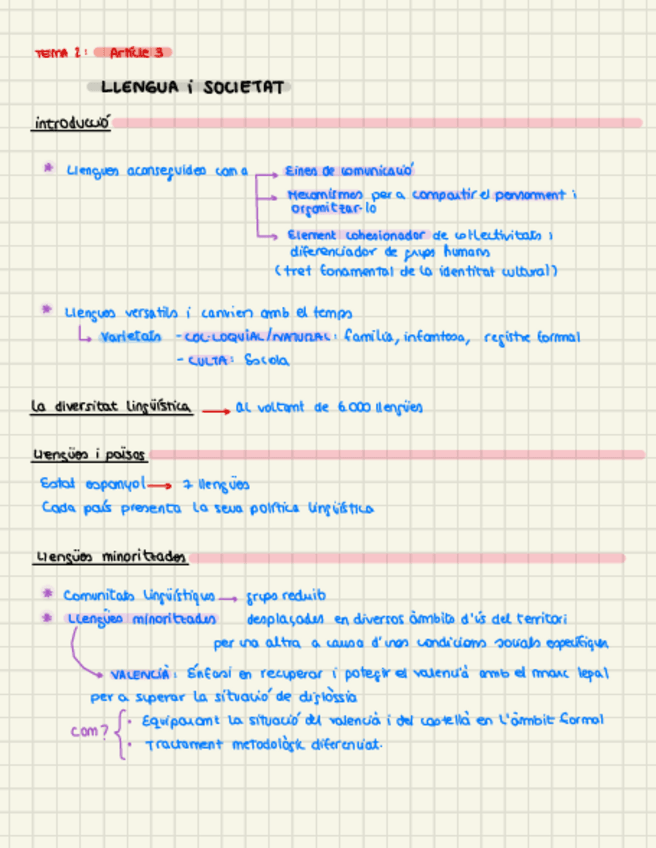 TEMA 2: Article 3
LLENGUA i SOCIETAT
introducció
* Llengües aconseguides com a → Eines de comunicació
→ Mecanismes per a compartir el pensament i
organitzar-lo
→ Element cohesionador de col·lectivitats i
diferenciador de grups humans
(tret fonamental de la identitat cultural)
* Llengües versatils i canvien amb el temps
↳ Varietats - COL·LOQUIAL/NATURAL: família, infantesa, registre formal
- CULTA: Escola
La diversitat lingüística → al voltant de 6.000 llengües
Llengües i països
Estat espanyol → 7 llengües
Cada país presenta la seua política lingüística
Llengües minoritzades
* Comunitats lingüístiques → grups reduïts
* Llengües minoritzades desplaçades en diversos àmbits d'ús del territori
per una altra a causa d'unes condicions socials específiques
→ VALENCIÀ: Émfasi en recuperar i potegir el valencià amb el marc legal
per a superar la situació de diglòssia
com? { · Equiparant la situació del valencià i del castellà en l'àmbit formal
· Tractament metodològic diferenciat.